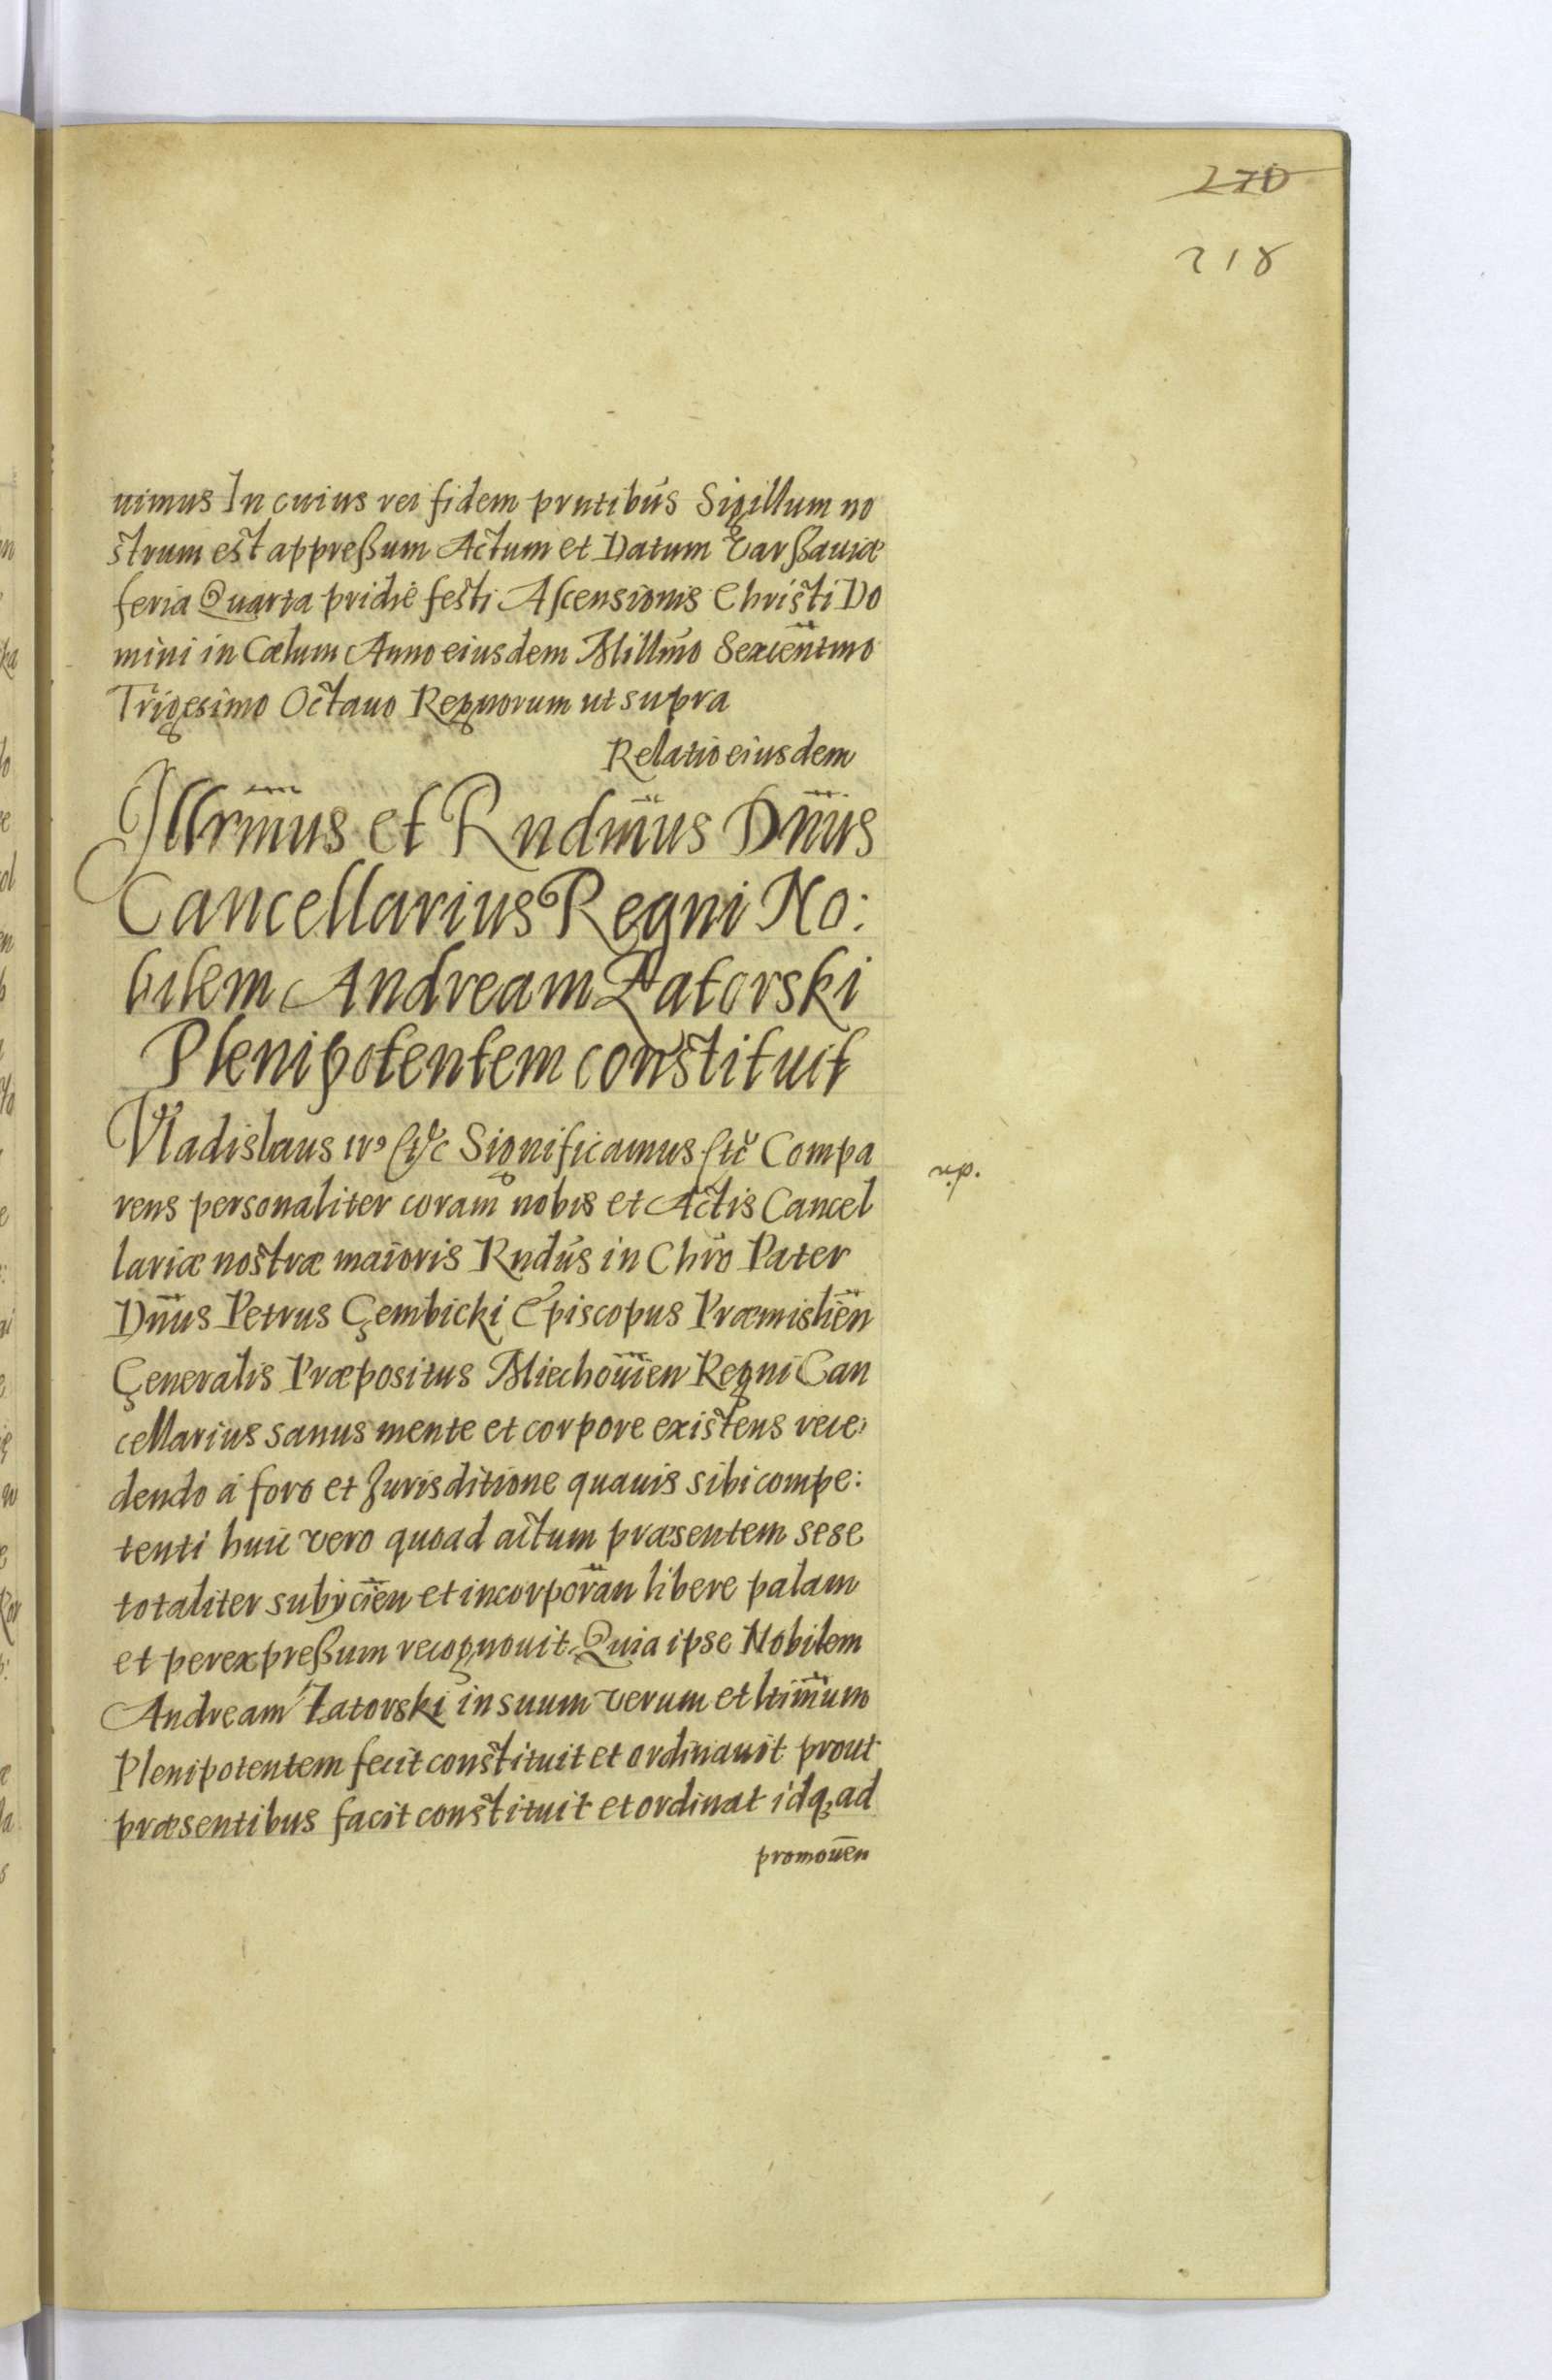 270
218
uimus In cuius rei fidem prntibus Sigillum no
strum est appreßum Actum et Datum Varßauiæ
feria Quarta pridie festi Ascensionis Christi Do
mini in Cœlum Anno eiusdem Millmo Sexcentmo
Trigesimo Octauo Regnorum ut supra
Relatio eiusdem
Illrmus et Rndmus Dnus
Cancellarius Regni No:
bilem Andream Zatorski
Plenipotentem constituit
Vladislaus IVs etc Significamus etc Compa
rens personaliter coram nobis et Actis Cancel
lariæ nostræ maioris Rndus in Chro Pater
Dnus Petrus Gembicki Episcopus Præmislien
Generalis Præpositus Miechouien Regni Can
cellarius sanus mente et corpore existens rece,
dendo a foro et Jurisditione quauis sibi compe:
tenti huic vero quoad actum præsentem sese
totaliter subijcien et incorporan libere palam
et per expreßum recognouit Quia ipse Nobilem
Andream Zatorski in suum verum et ltimum
Plenipotentem fecit constituit et ordinauit prout
præsentibus facit constituit et ordinat idq, ad
promouen